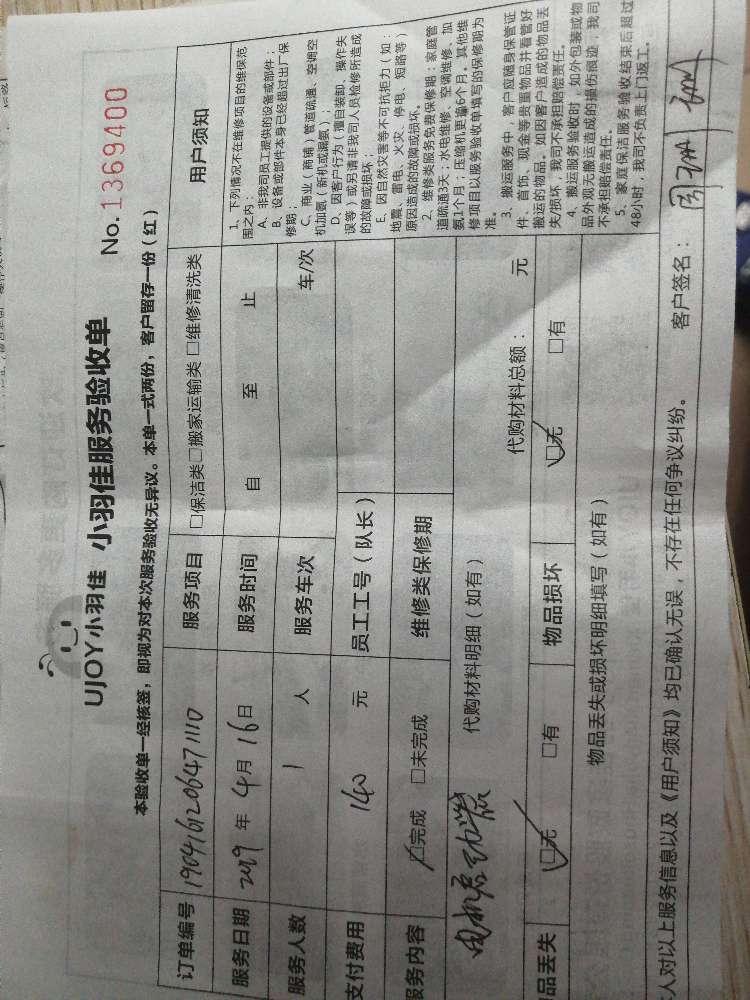 UJOY小羽佳 小羽佳服务验收单
No.1369400
本验收单一经核签，即视为对本次服务验收无异议。本单一式两份，客户留存一份（红）
订单编号 190416120647110 服务项目 □保洁类□搬家运输类□维修清洗类
服务日期 2019 年 4 月 16 日 服务时间 自 至 止
服务人数 1 人 服务车次 车/次
支付费用 140 元 员工工号（队长）
服务内容 ☑完成 □未完成 维修类保修期
代购材料明细（如有） 代购材料总额： 元
品丢失 ☑无 □有 物品损坏 ☑无 □有
物品丢失或损坏明细填写（如有）
用户须知
1、下列情况不在维修项目的维保范
围之内：
A、非我司员工提供的设备或部件；
B、设备或部件本身已经超过出厂保
修期；
C、商业（商铺）管道疏通、空调空
机加氨（新机或漏氨）；
D、因客户行为（擅自装卸、操作失
误等）或另请非我司人员检修所造成
的故障或损坏；
E、因自然灾害等不可抗拒力（如：
地震、雷电、火灾、停电、短路等）
原因造成的故障或损坏。
2、维修类服务免费保修期：家庭管
道疏通3天；水电维修、空调维修、加
氨1个月；压缩机更换6个月。其他维
修项目以服务验收单填写的保修期为
准。
3、搬运服务中，客户应随身保管证
件、首饰、现金等贵重物品并看管好
搬运的物品。如因客户造成的物品丢
失/损坏，我司不承担赔偿责任。
4、搬运服务验收时，如外包装或物
品外观无搬运造成的损伤痕迹，我司
不承担赔偿责任。
5、家庭保洁服务验收结束后超过
48小时，我司不负责上门返工。
人对以上服务信息以及《用户须知》均已确认无误，不存在任何争议纠纷。 客户签名：